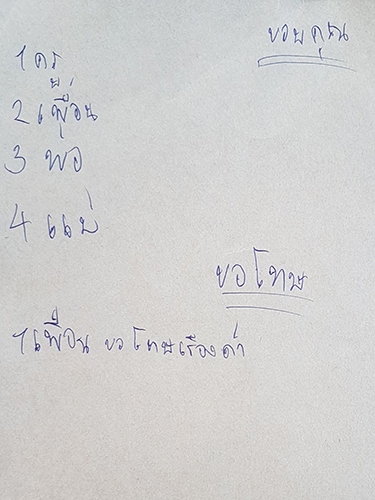 ขอบคุณ
1 ครู
2 เพื่อน
3 พอ
4 แม่
ขอโทษ
1 เพื่อน ขอโทษเรื่องด่า